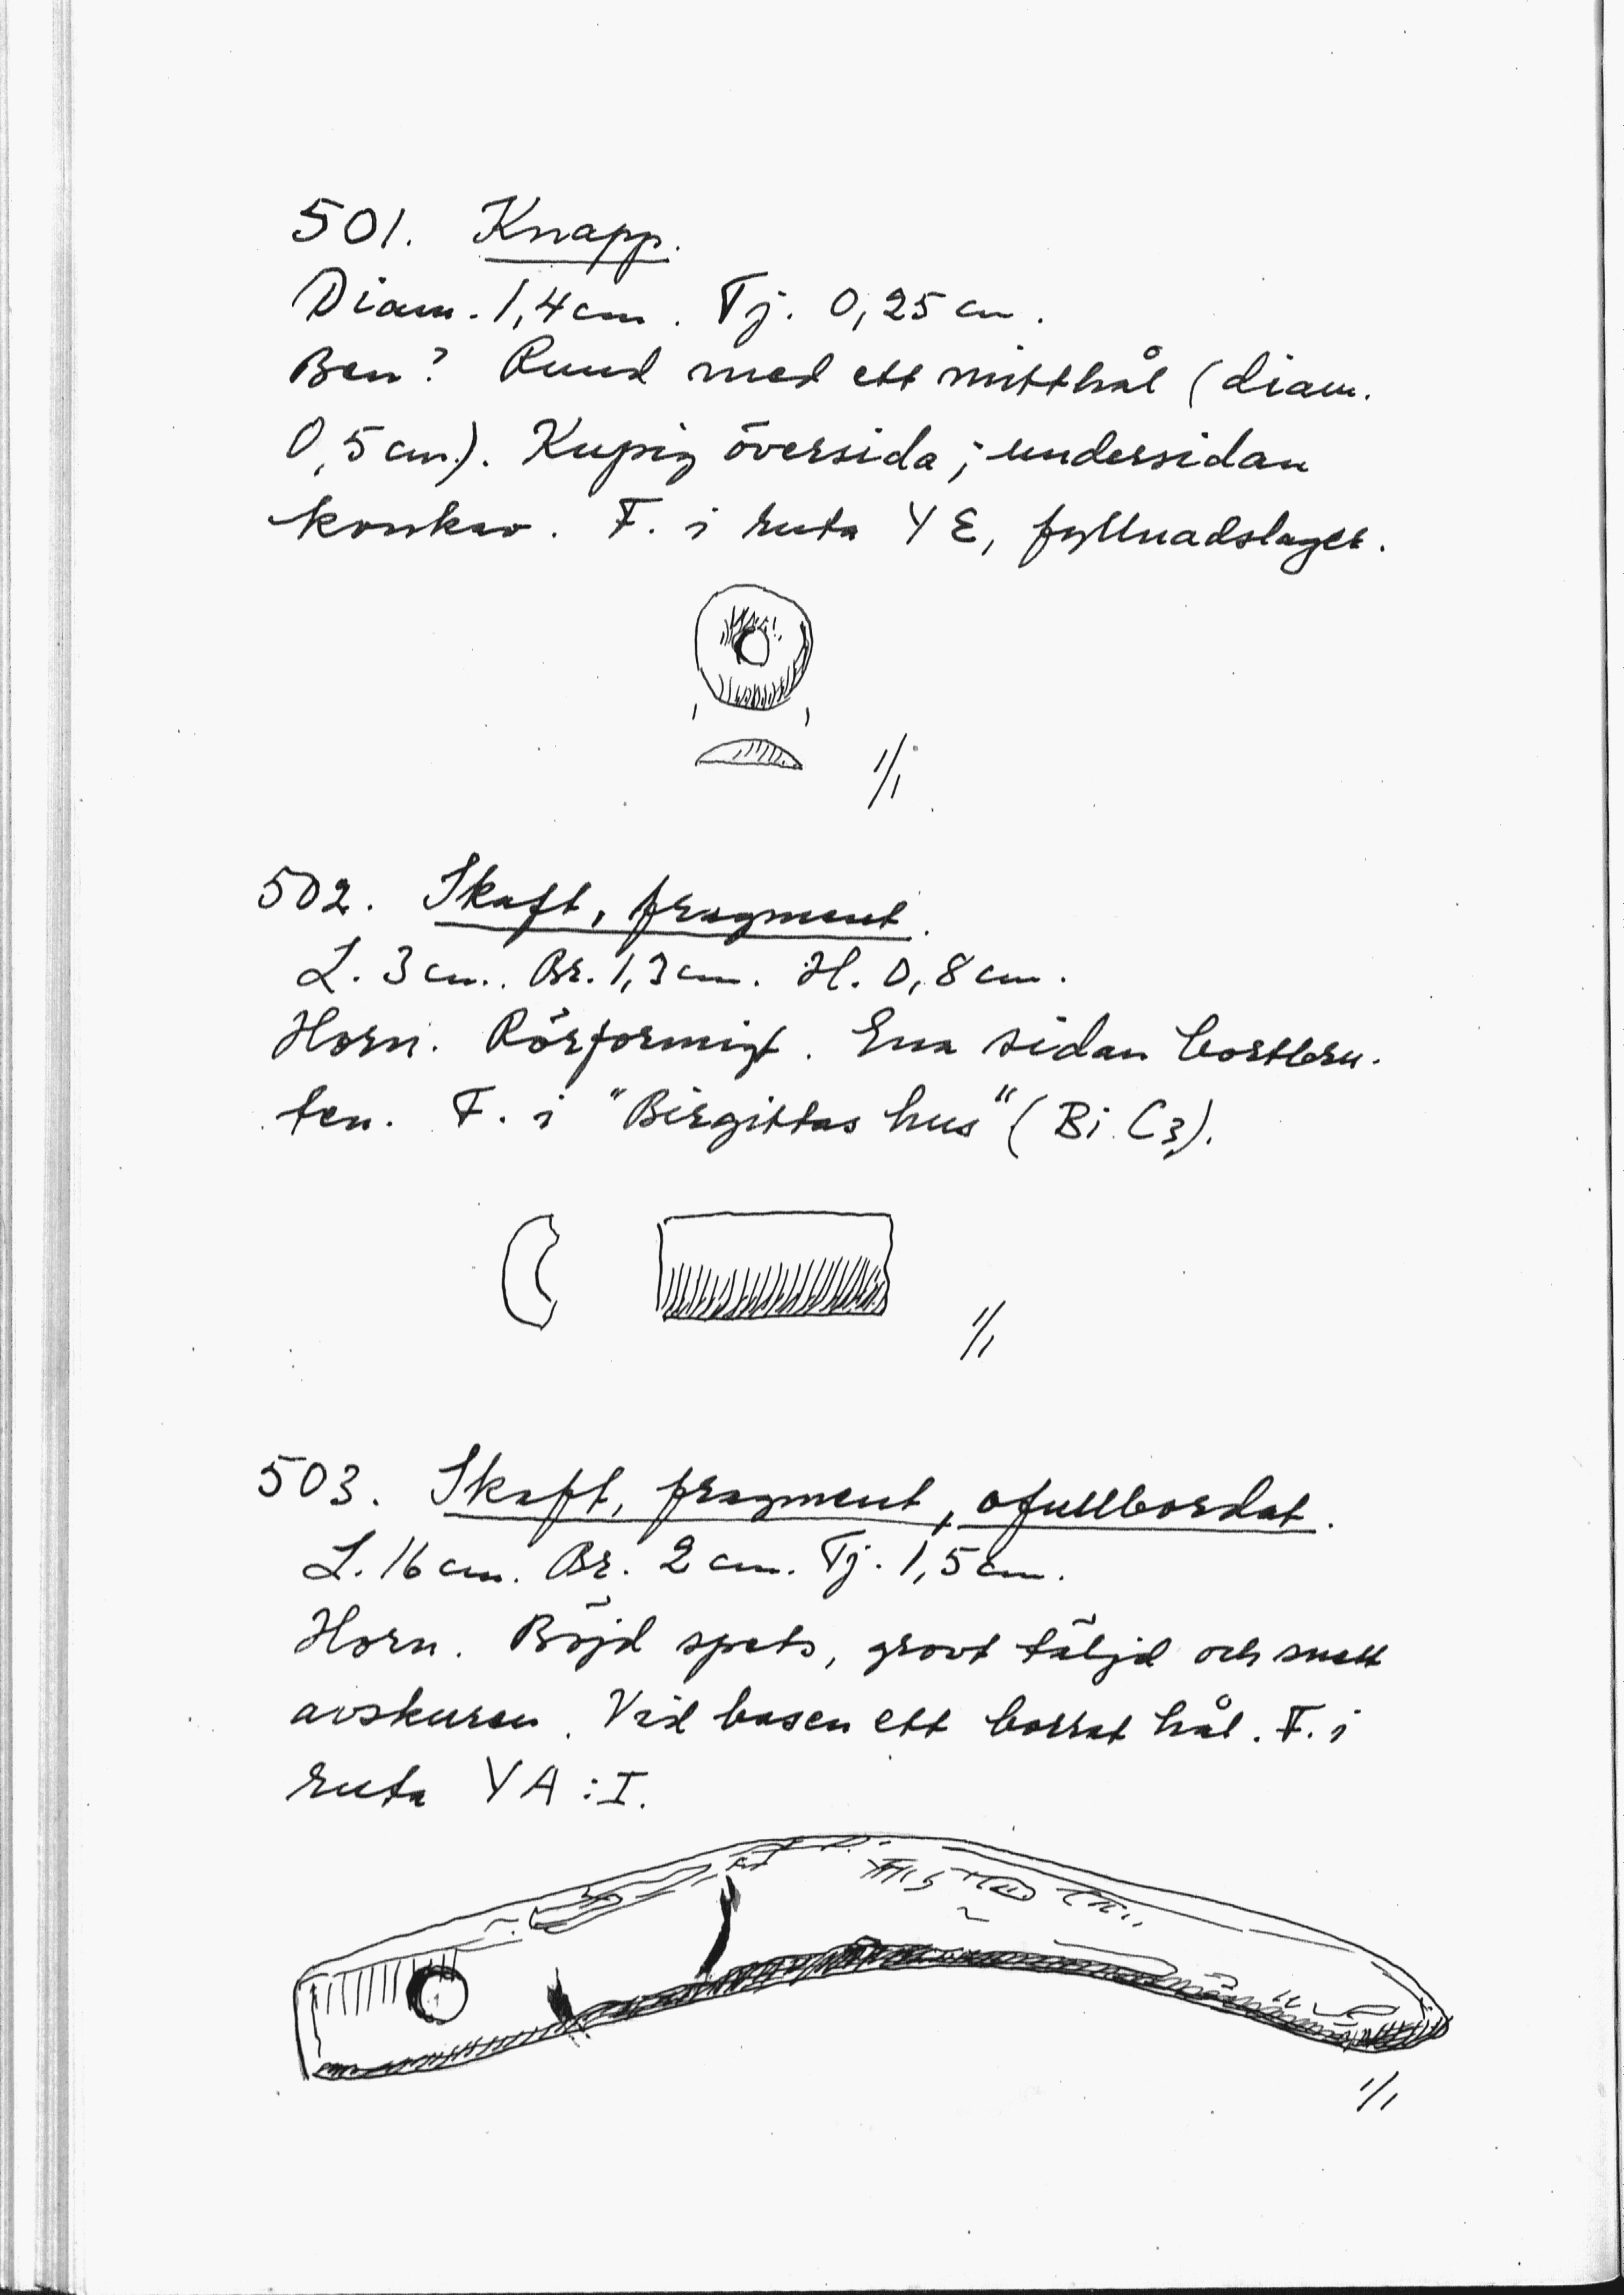 501. Knapp.
Diam. 1,4 cm. Tj. 0,25 cm.
Ben? Rund med ett mitthål (diam.
0,5 cm.). Kupig översida; undersidan
konkav. F. i ruta YE, fyllnadslager.
1/1
502. Skaft, fragment.
L. 3 cm. Br. 1,3 cm. H. 0,8 cm.
Horn. Rörformigt. Ena sidan bortbru-
ten. F. i "Birgittas hus" (Bi C3).
1/1
503. Skaft, fragment, ofullbordat.
L. 16 cm. Br. 2 cm. Tj. 1,5 cm.
Horn. Böjd spets, grovt täljd och snett
avskuren. Vid basen ett borrat hål. F. i
ruta YA:I.
1/1